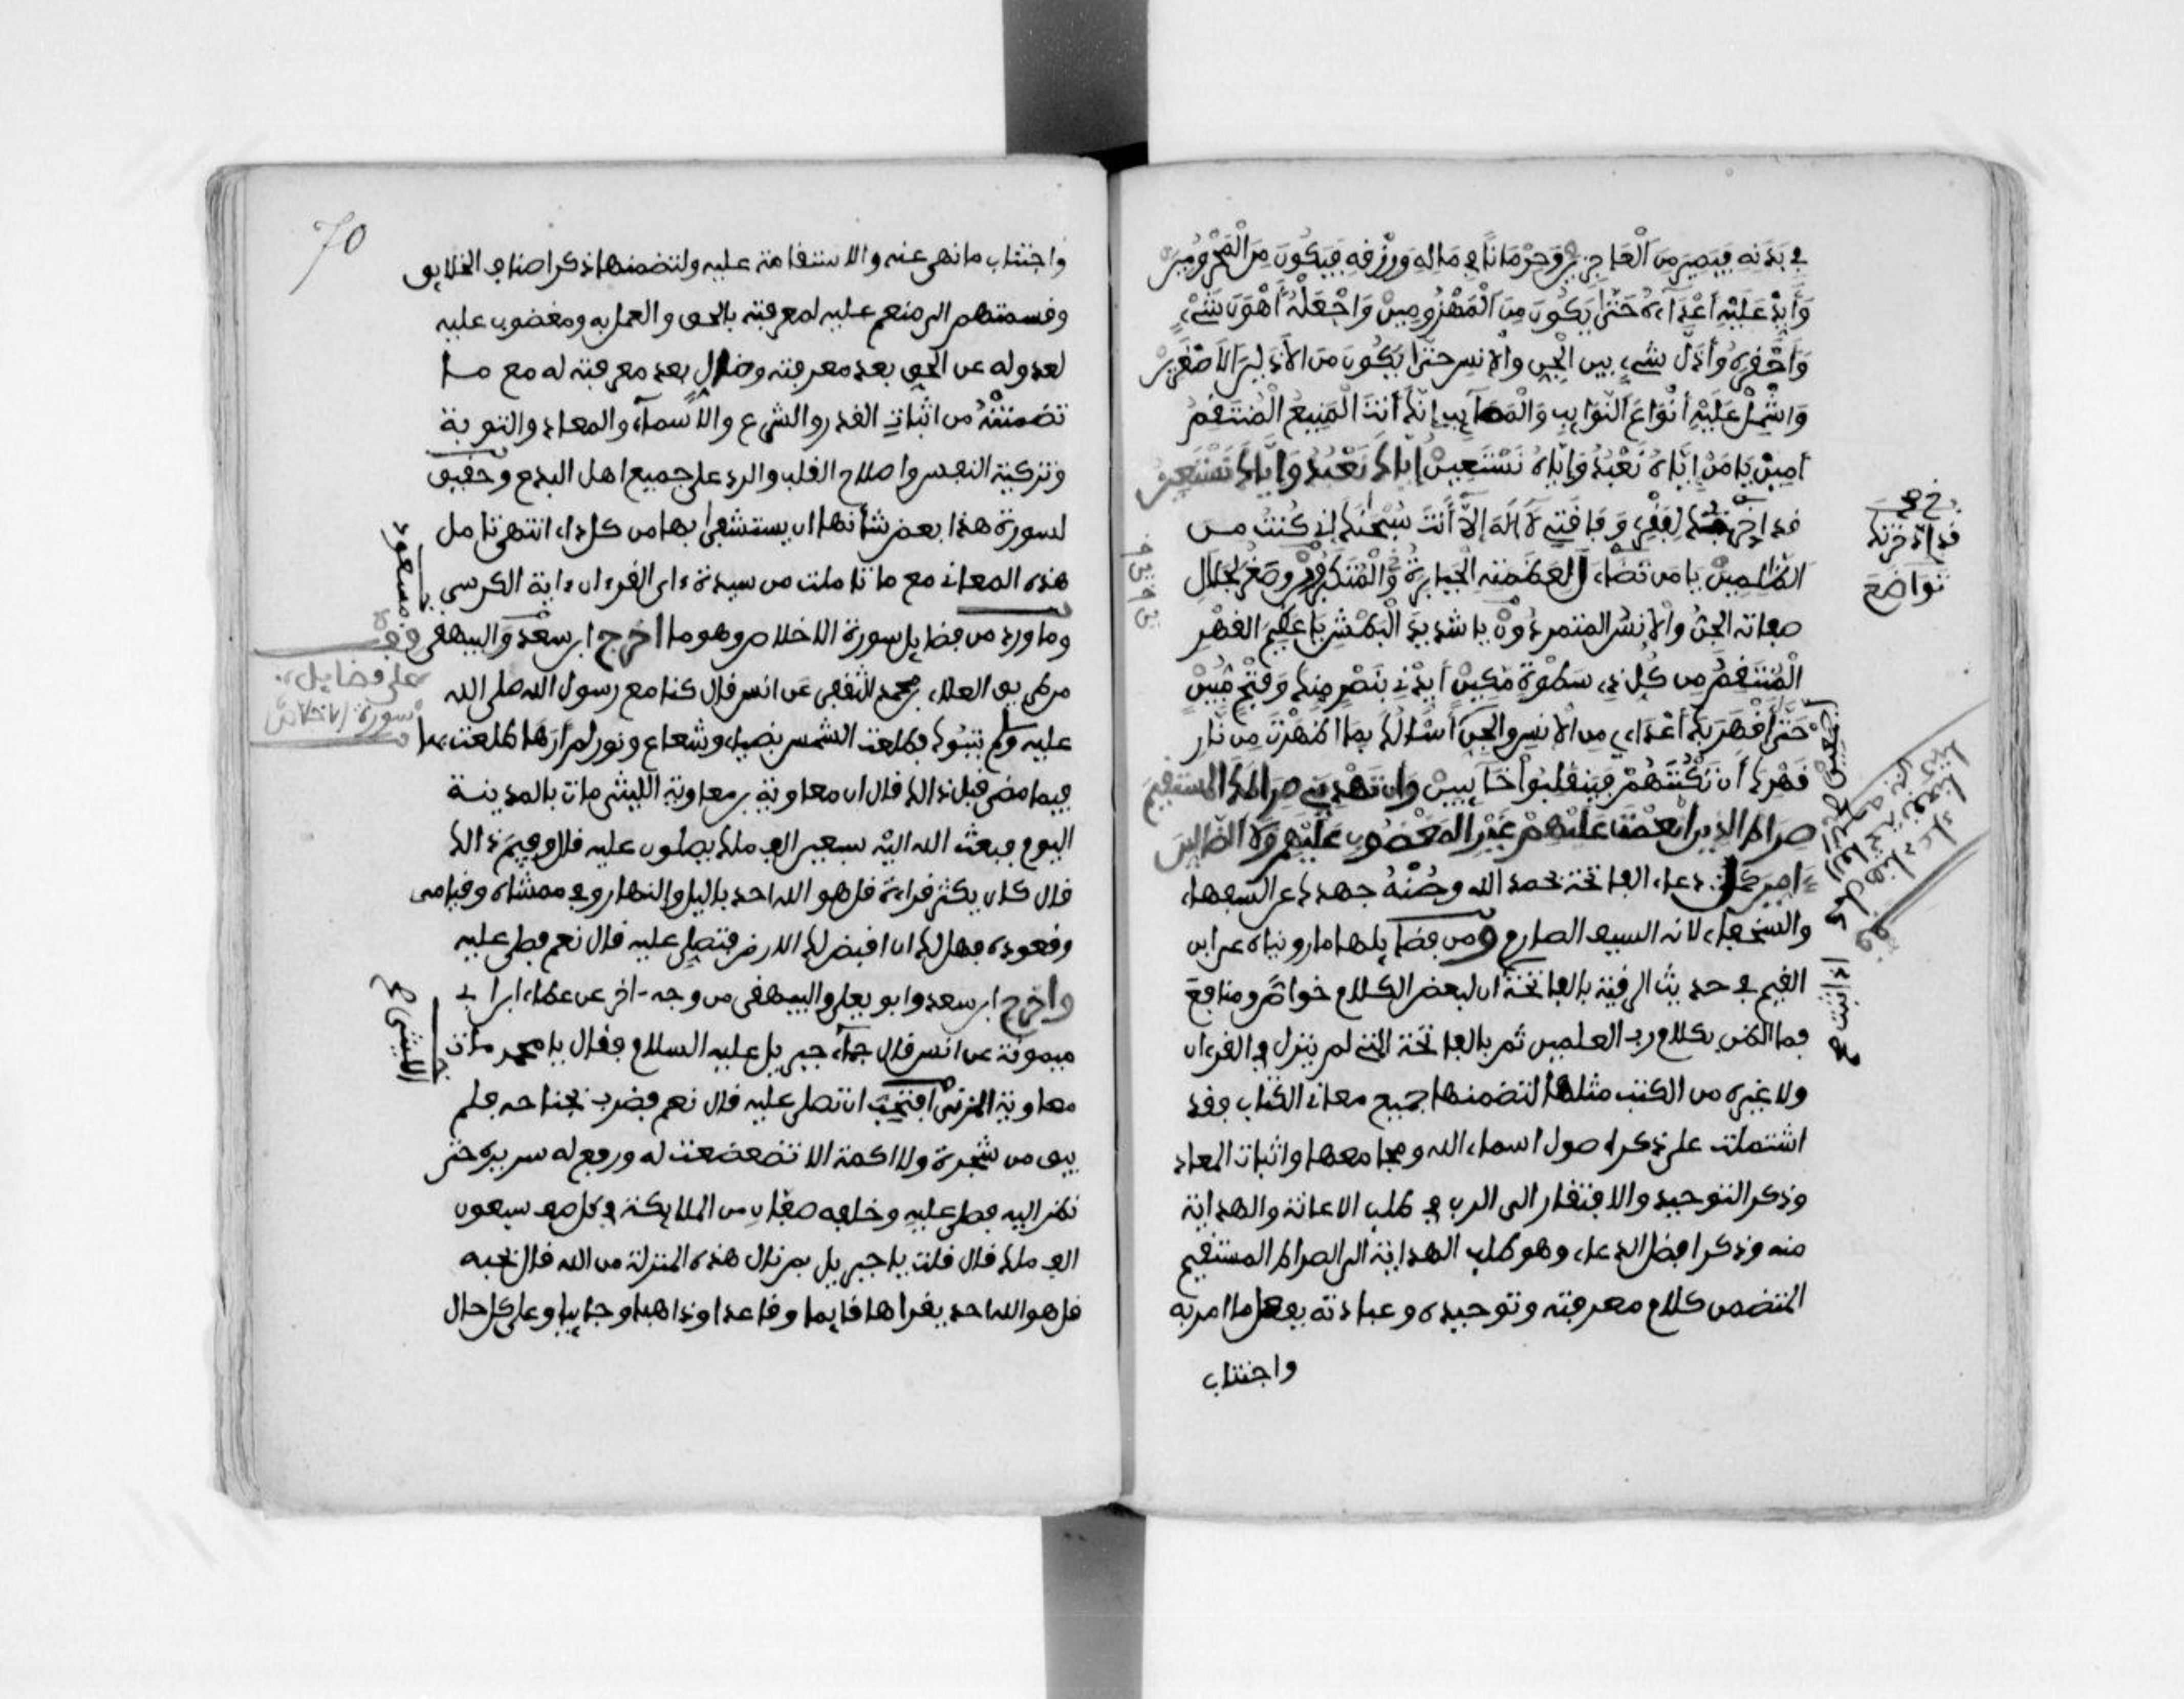 في بدنه فيصير من العاجزين وحرمانا في ماله ورزقه فيكون من المحرومين
وأيد عليه أعداءه حتى يكون من المهزومين واجعله أهون شيء
وأحقره وأذل شيء بين الجن والإنس حتى يكون من الأذلين الأصغرين
واشمل عليه أنواع النوايب والمصايب إنك أنت المنيع المنتقم
امين يا من إياه نعبد وإياه نستعين إياك نعبد وإياك نستعين
لفقري وفاقتي لا اله إلا أنت سبحنك إني كنت من
الظلمين يا من تضاءل لعظمته الجبابرة والمتكبرون وصغر لجلال
صفاته الجن والإنس المتمردون يا شديد البطش يا عظيم القهر
المنتقم من كل ذي سطوة مكين أيدني بنصر منك وفتح مبين
حتى أقهر بك أعداءي من الإنس والجن أسألك بما أظهرت من نار
قهرك أن تكبتهم فينقلبوا خآيبين وان تهديني صراطك المستقيم
صراط الذين انعمت عليهم غير المغضوب عليهم ولا الضالين
ءامين كمل دعاء الفاتحة بحمد الله وصنه جهدك عن السفهاء
والسخفاء لانه السيف الصارم ومن فضايلها ما رويناه عن ابن
القيم في حديث الرقية بالفاتحة ان لبعض الكلام خواص ومنافع
فما الظن بكلام رب العلمين ثم بالفاتحة التي لم ينزل في القرءان
ولا غيره من الكتب مثلها لتضمنها جميع معاني الكتاب وفقد
اشتملت على ذكر اصول اسماء الله ومجامعها واثبات المعاد
وذكر التوحيد والافتقار الى الرب في طلب الاعانة والهداية
منه وذكر افضل الدعاء وهو طلب الهداية الى الصراط المستقيم
المتضمن كلام معرفته وتوحيده وعبادته بفعل ما امر به
واجتناب
تواضع
70
واجتناب ما نهى عنه والاستقامة عليه ولتضمنها ذكر اصناف الخلايق
وقسمتهم الى منعم عليه لمعرفته بالحق والعمل به ومغضوب عليه
لعدوله عن الحق بعد معرفته وضال بعد معرفته له مع ما
تضمنته من اثبات القدر والشرع والأسماء والمعاد والتوبة
وتزكية النفس واصلاح القلب والرد على جميع اهل البدع وحقيق
لسورة هذا بعض شأنها ان يستشفى بها من كل داء انتهى تامل
هذه المعاني مع ما تاملت من سيدة ءاي القرءان ءاية الكرسي
وما ورد من فضايل سورة الاخلاص وهو ما اخرج ابن سعد والبيهقي
من طريق العلاء بن محمد الثقفي عن انس قال كنا مع رسول الله صلى الله
عليه وسلم بتبوك فطلعت الشمس بضياء وشعاع ونور لم أرها طلعت بها
فيما مضى قبل ذالك قال ان معاوية بن معاوية الليثي مات بالمدينة
اليوم فبعث الله اليه سبعين الف ملك يصلون عليه قال وفيم ذالك
قال كان يكثر قراءة قل هو الله احد باليل والنهار وفي ممشاه وقيامه
وقعوده فهل لك ان اقبض لك الارض فتصلي عليه قال نعم فصلى عليه
واخرج ابن سعد وابو يعلى والبيهقي من وجه ءاخر عن عطاء ابن ابي
ميمونة عن انس قال جاء جبريل عليه السلام فقال يا محمد مات
معاوية المزني افتحب ان تصلي عليه قال نعم فضرب بجناحه فلم
يبق من شجرة ولا اكمة الا تضعضعت له ورفع له سريره حتى
نظر اليه فصلى عليه وخلفه صفان من الملايكة في كل صف سبعون
الف ملك قال قلت يا جبريل بم نال هذه المنزلة من الله قال بحبه
قل هو الله احد يقراها قايما وقاعدا وذاهبا وجاييا وعلى كل حال
مسعود
قف
على فضايل
سورة الاخلاص
الليثي